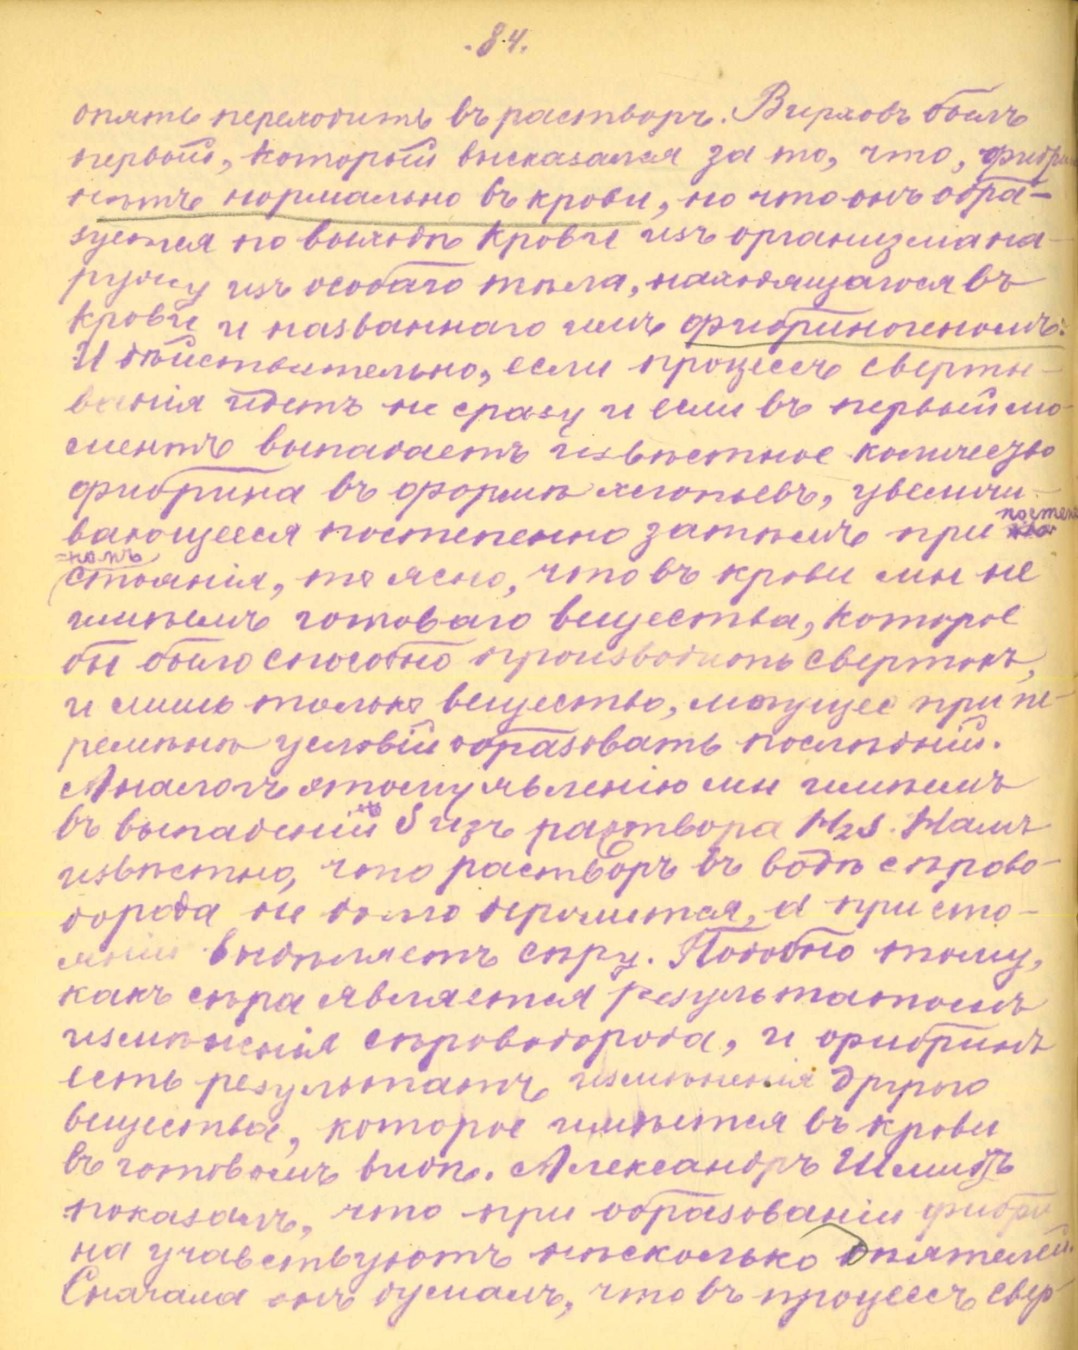 .84.
опять переходить въ растворъ. Вирховъ былъ
первый, который высказался за то, что, фибри
нътъ нормально въ крови, но что онъ обра-
зуется по выходѣ крови изъ организма на-
ружу изъ особаго тѣла, находящагося въ
крови и названнаго имъ фибриногеномъ.
И дѣйствительно, если процессъ сверты-
ванія идетъ не сразу и если въ первый мо-
ментъ выпадаетъ извѣстное количество
фибрина въ формѣ хлопьевъ, увеличи-
вающееся постепенно затѣмъ при постепен
-номъ
стоянія, то ясно, что въ крови мы не
имѣемъ готоваго вещества, которое
бы было способно производить свертокъ,
и лишь только вещество, могущее при пе-
ремѣнѣ условій образовать послѣдній.
Аналогъ этому явленію мы имѣемъ
въ выпаденіи S изъ раствора H2S. Намъ
извѣстно, что растворъ въ водѣ сѣрово-
дорода не долго хранится, а при сто-
яніи выдѣляетъ сѣру. Подобно тому,
какъ сѣра является результатомъ
измѣненія сѣроводорода, и фибринъ
есть результатъ измѣненія другого
вещества, которое имѣется въ крови
въ готовомъ видѣ. Александръ Шмидтъ
показалъ, что при образованіи фибри
на учавствуютъ нѣсколько дѣятелей.
Сначала онъ думалъ, что въ процессѣ свер-